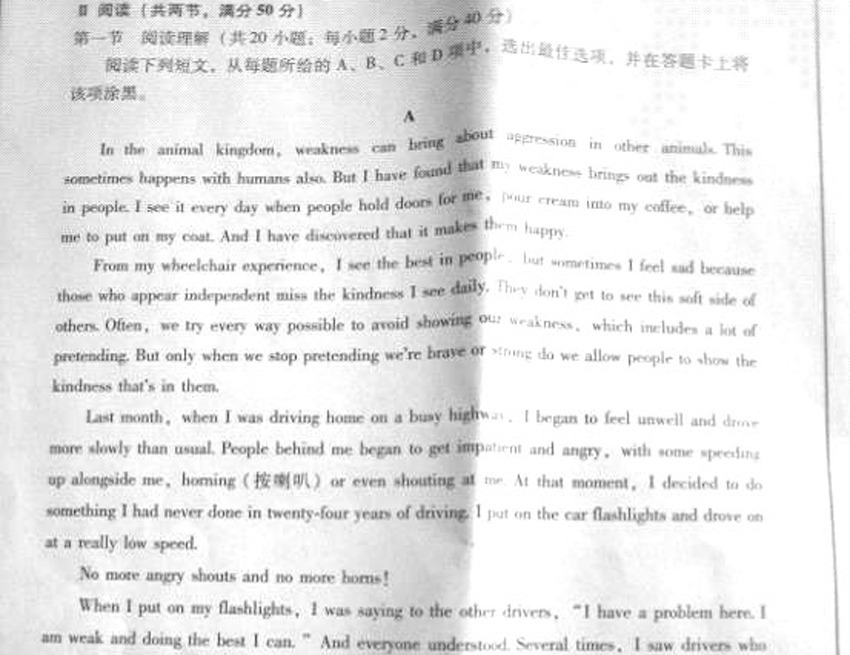 II 阅读（共两节，满分 50 分）
第一节 阅读理解（共20 小题；每小题2 分，满分40 分）
阅读下列短文，从每题所给的 A、B、C 和 D 项中，选出最佳选项，并在答题卡上将
该项涂黑。
A
In the animal kingdom, weakness can bring about aggression in other animals. This
sometimes happens with humans also. But I have found that my weakness brings out the kindness
in people. I see it every day when people hold doors for me, pour cream into my coffee, or help
me to put on my coat. And I have discovered that it makes them happy.
From my wheelchair experience, I see the best in people, but sometimes I feel sad because
those who appear independent miss the kindness I see daily. They don't get to see this soft side of
others. Often, we try every way possible to avoid showing our weakness, which includes a lot of
pretending. But only when we stop pretending we're brave or strong do we allow people to show the
kindness that's in them.
Last month, when I was driving home on a busy highway, I began to feel unwell and drove
more slowly than usual. People behind me began to get impatient and angry, with some speeding
up alongside me, horning (按喇叭) or even shouting at me. At that moment, I decided to do
something I had never done in twenty-four years of driving. I put on the car flashlights and drove on
at a really low speed.
No more angry shouts and no more horns!
When I put on my flashlights, I was saying to the other drivers, "I have a problem here. I
am weak and doing the best I can." And everyone understood. Several times, I saw drivers who